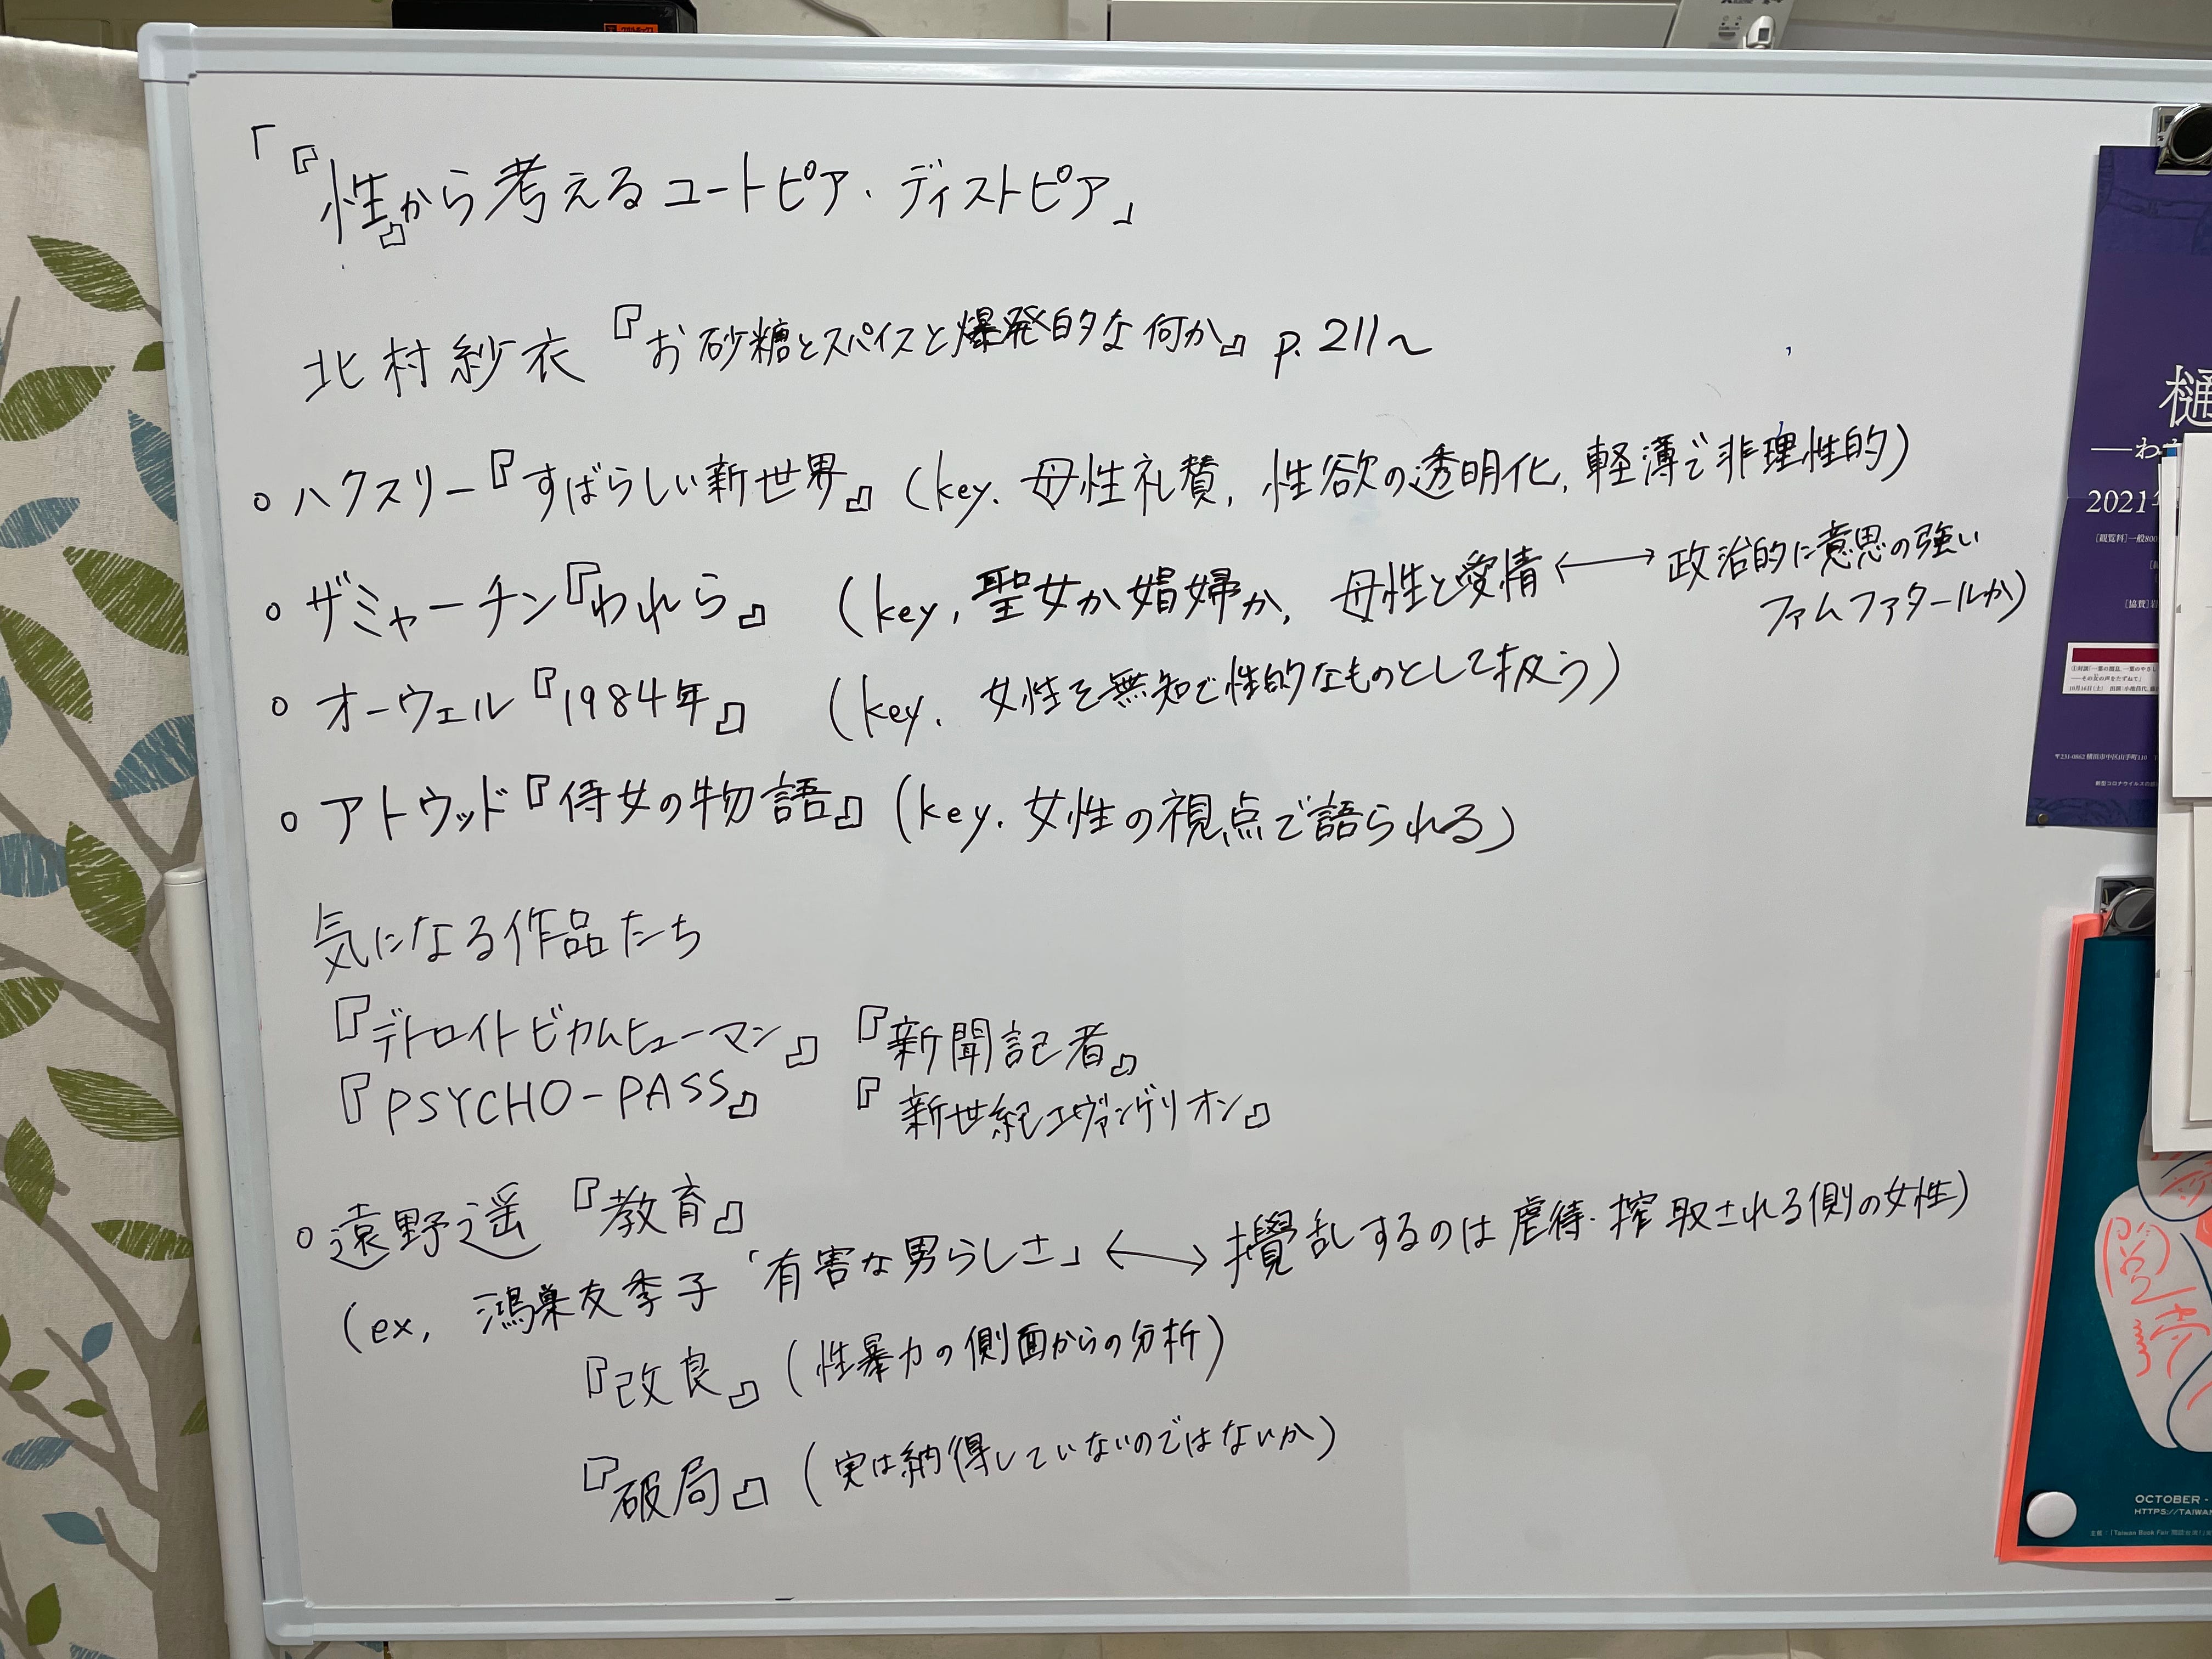 「『性』から考えるユートピア・ディストピア」
北村紗衣『お砂糖とスパイスと爆発的な何か』p.211〜
○ハクスリー『すばらしい新世界』(key. 母性礼賛, 性欲の透明化, 軽薄で非理性的)
○ザミャーチン『われら』(key, 聖女か娼婦か, 母性と愛情⟷政治的に意思の強い
ファムファタールか)
○オーウェル『1984年』(key. 女性を無知で性的なものとして扱う)
○アトウッド『侍女の物語』(key. 女性の視点で語られる)
気になる作品たち
『デトロイトビカムヒューマン』『新聞記者』
『PSYCHO-PASS』『新世紀エヴァンゲリオン』
○遠野遥『教育』
(ex, 鴻巣友季子「有害な男らしさ」⟷攪乱するのは虐待・搾取される側の女性)
『改良』(性暴力の側面からの分析)
『破局』(実は納得していないのではないか)
樋
──わ
2021年
[観覧料]一般800
[協賛]岩
〒231-0862 横浜市中区山手町110
OCTOBER -
HTTPS://TAIWA